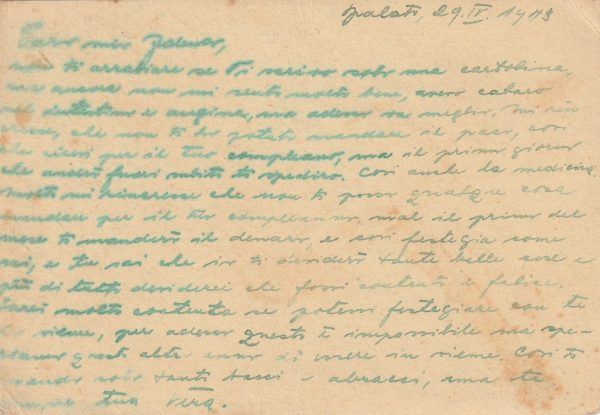 Spalato, 29.IV.1943
Caro mio Zdenko,
non ti arrabiare se Ti scrivo solo una cartolina,
ma ancora non mi sento molto bene, avevo cataro
e angina, ma adesso va meglio. Mi rin
cresce, che non ti ho potuto mandare il paco, cosi
che riesci per il tuo compleano, ma il primo giorno
che andrò fuori subito ti spediro. Cosi anche la medicina.
Molto mi rincresce che non ti posso qualque cosa
mandare per il tuo compleanno, mal il primo del
mese ti manderò il denaro, e cosi festegia come
sai, e tu sai che io ti desidero tante belle cose e
più di tutto desiderei che fossi contento e felice.
Sarei molto contenta se potessi festegiare con te
in sieme, per adesso questo è impossibile ma spe-
riamo questo altro anno di essere in sieme. Cosi ti
mando solo tanti bacci e abracci, ama te
sempre tua Vera.